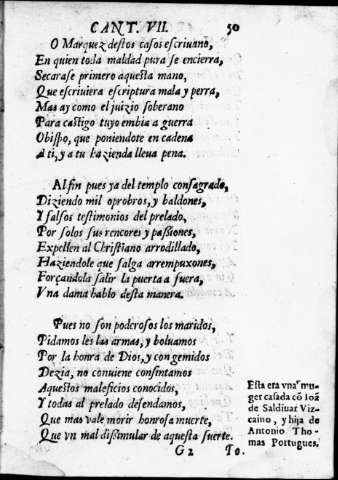 CANT. VII. 50
O Marquez destos casos escriuano,
En quien toda maldad pura se encierra,
Secarase primero aquesta mano,
Que escriuiera escriptura mala y perra,
Mas ay como el juizio soberano
Para castigo tuyo embia a guerra
Obispo, que poniendote en cadena
A ti, y a tu hazienda lleua pena.
Al fin pues ya del templo consagrado,
Diziendo mil oprobros, y baldones,
Y falsos testimonios del prelado,
Por solos sus rencores y passiones,
Expellen al Christiano arrodillado,
Haziendole que salga a rrempuxones,
Forçandola salir la puerta a fuera,
Vna dama hablo desta manera.
Pues no son poderosos los maridos,
Pidamos les las armas, y boluamos
Por la honra de Dios, y con gemidos
Dezia, no conuiene consintamos
Aquestos maleficios conocidos,
Y todas al prelado defendamos,
Que mas vale morir honrosa muerte,
Que vn mal dissimular de aquesta suerte.
Esta era vna mu-
ger casada cõ Ioã
de Saldiuar Viz-
caino, y hija de
Antonio Tho-
mas Portugues.
G 2 To.